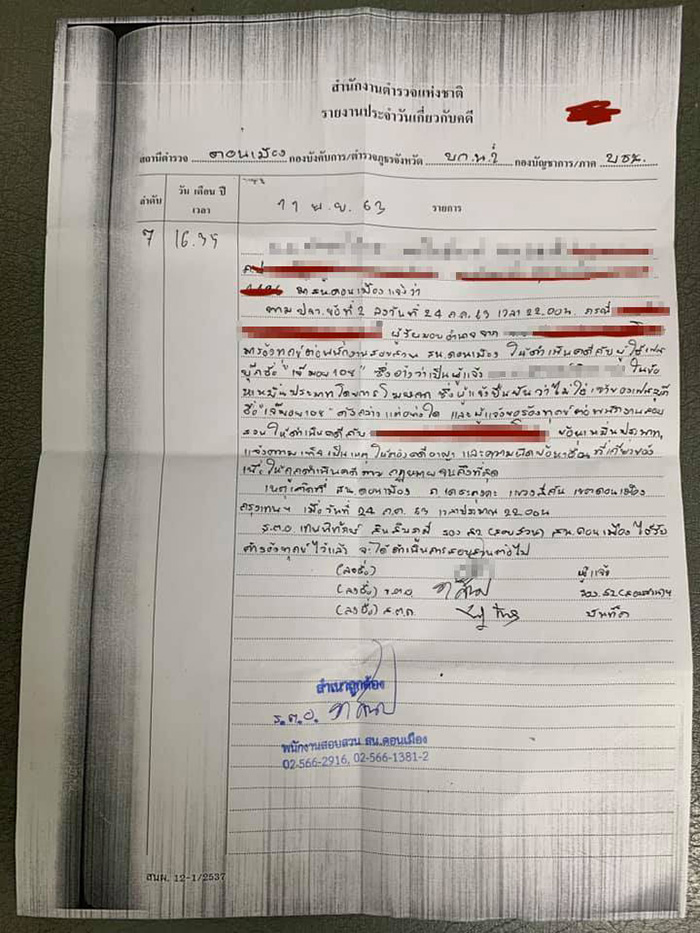 สำนักงานตำรวจแห่งชาติ
รายงานประจำวันเกี่ยวกับคดี
สถานีตำรวจ ดอนเมือง กองบังคับการ/ตำรวจภูธรจังหวัด บก.น.2 กองบัญชาการ/ภาค บชน.
ลำดับ วัน เดือน ปี เวลา 11 พ.ย. 63 รายการ
7 16.35
มาสน.ดอนเมืองแจ้งว่า
ตาม ปจว. ข้อที่ 2 ลงวันที่ 24 ต.ค. 63 เวลา 22.00น. กรณี
ผู้รับมอบอำนาจจาก
มาร้องทุกข์ต่อพนักงานสอบสวน สน.ดอนเมือง ให้ดำเนินคดีกับผู้ใช้เฟส
บุ๊คชื่อ "เจ๊มอย108" ซึ่งอ้างว่าเป็นผู้แจ้ง ในข้อ
หาหมิ่นประมาทโดยการโฆษณา ซึ่งผู้แจ้งยืนยันว่าไม่ใช่เจ้าของเฟสบุ๊ค
ชื่อ "เจ๊มอย108" ดังกล่าวแต่อย่างใด และผู้แจ้งขอร้องทุกข์ต่อพนักงานสอบ
สวนให้ดำเนินคดีกับ ข้อหาหมิ่นประมาท,
แจ้งความเท็จเป็นเหตุให้ต้องคดีอาญา และความผิดข้อหาอื่นที่เกี่ยวข้อง
เพื่อให้ถูกดำเนินคดีตามกฎหมายจนถึงที่สุด
เหตุเกิดที่ สน.ดอนเมือง ถ.เตชะตุงคะ แขวงสีกัน เขตดอนเมือง
กรุงเทพฯ เมื่อวันที่ 24 ต.ค. 63 เวลาประมาณ 22.00น
ร.ต.อ. รอง สว.(สอบสวน) สน.ดอนเมือง ได้รับ
คำร้องทุกข์ไว้แล้ว จะได้ดำเนินการสอบสวนต่อไป
(ลงชื่อ) ผู้แจ้ง
(ลงชื่อ) ร.ต.อ. รอง สว.(สอบสวน)ฯ
(ลงชื่อ) ส.ต.ต. บันทึก
สำเนาถูกต้อง
ร.ต.อ.
พนักงานสอบสวน สน.ดอนเมือง
02-566-2916, 02-566-1381-2
สนผ. 12-1/2537